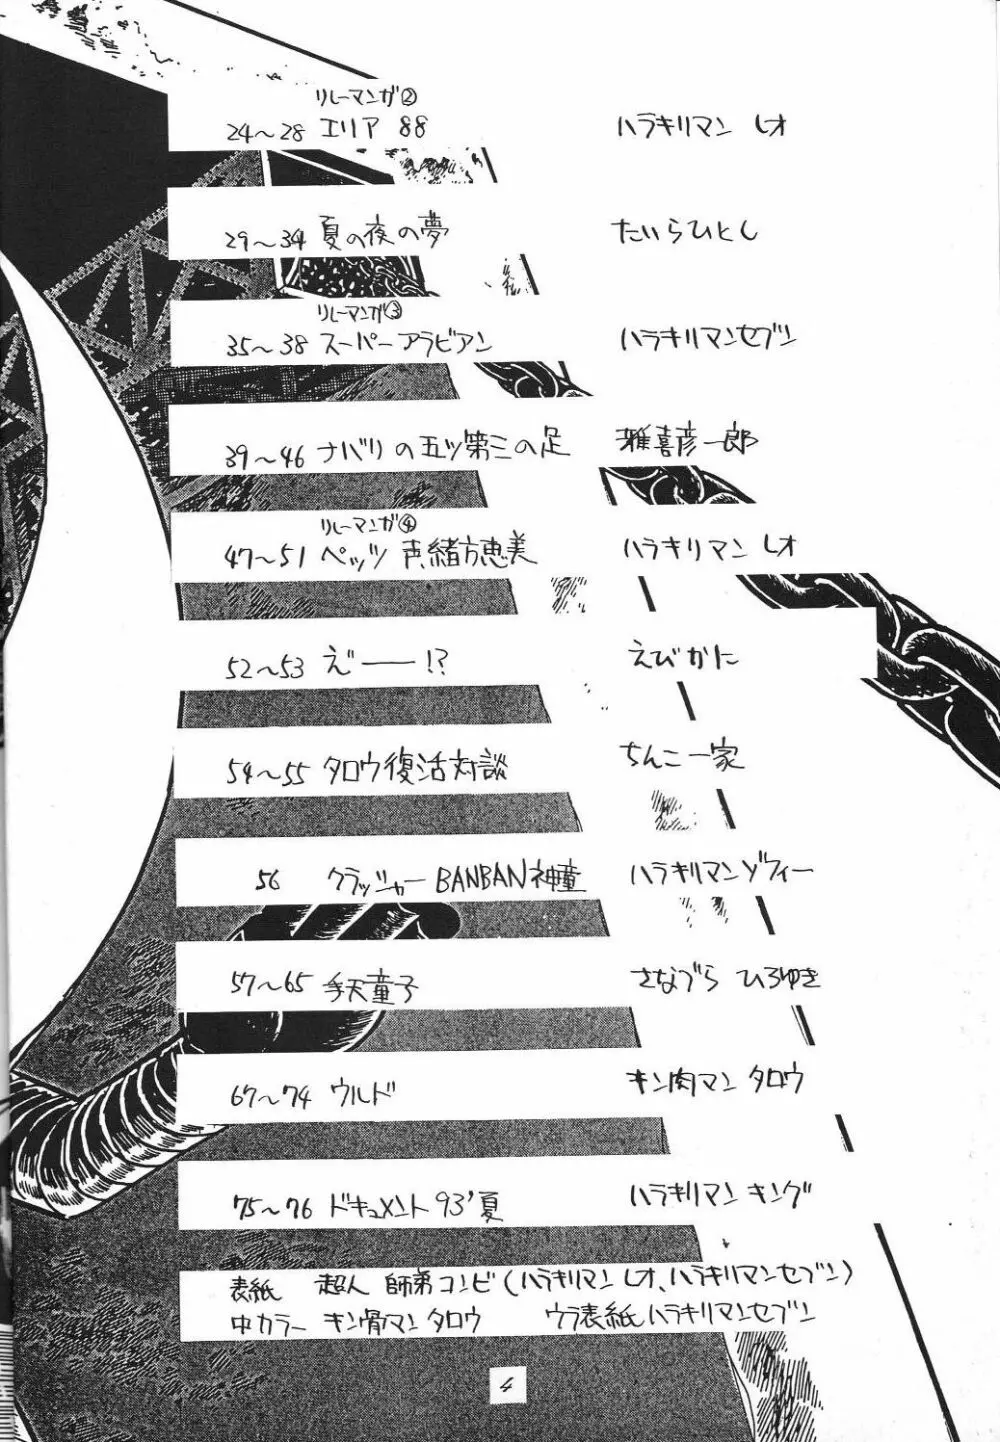 リレーマンガ②
24〜28 エリア 88 ハラキリマン レオ
29〜34 夏の夜の夢 たいらひとし
リレーマンガ③
35〜38 スーパーアラビアン ハラキリマンセブン
39〜46 ナバリの五ツ第三の足 雅喜彦一郎
リレーマンガ④
47〜51 ペッツ 声緒方恵美 ハラキリマン レオ
52〜53 え゛――!? えびかに
54〜55 タロウ復活対談 ちんこ一家
56 クラッシャーBANBAN神童 ハラキリマンゾフィー
57〜65 手天童子 さなづら ひろゆき
67〜74 ウルド キン肉マン タロウ
75〜76 ドキュメント93'夏 ハラキリマン キング
表紙 超人 師弟コンビ(ハラキリマン レオ、ハラキリマンセブン)
中カラー キン骨マン タロウ ウラ表紙 ハラキリマンセブン
4